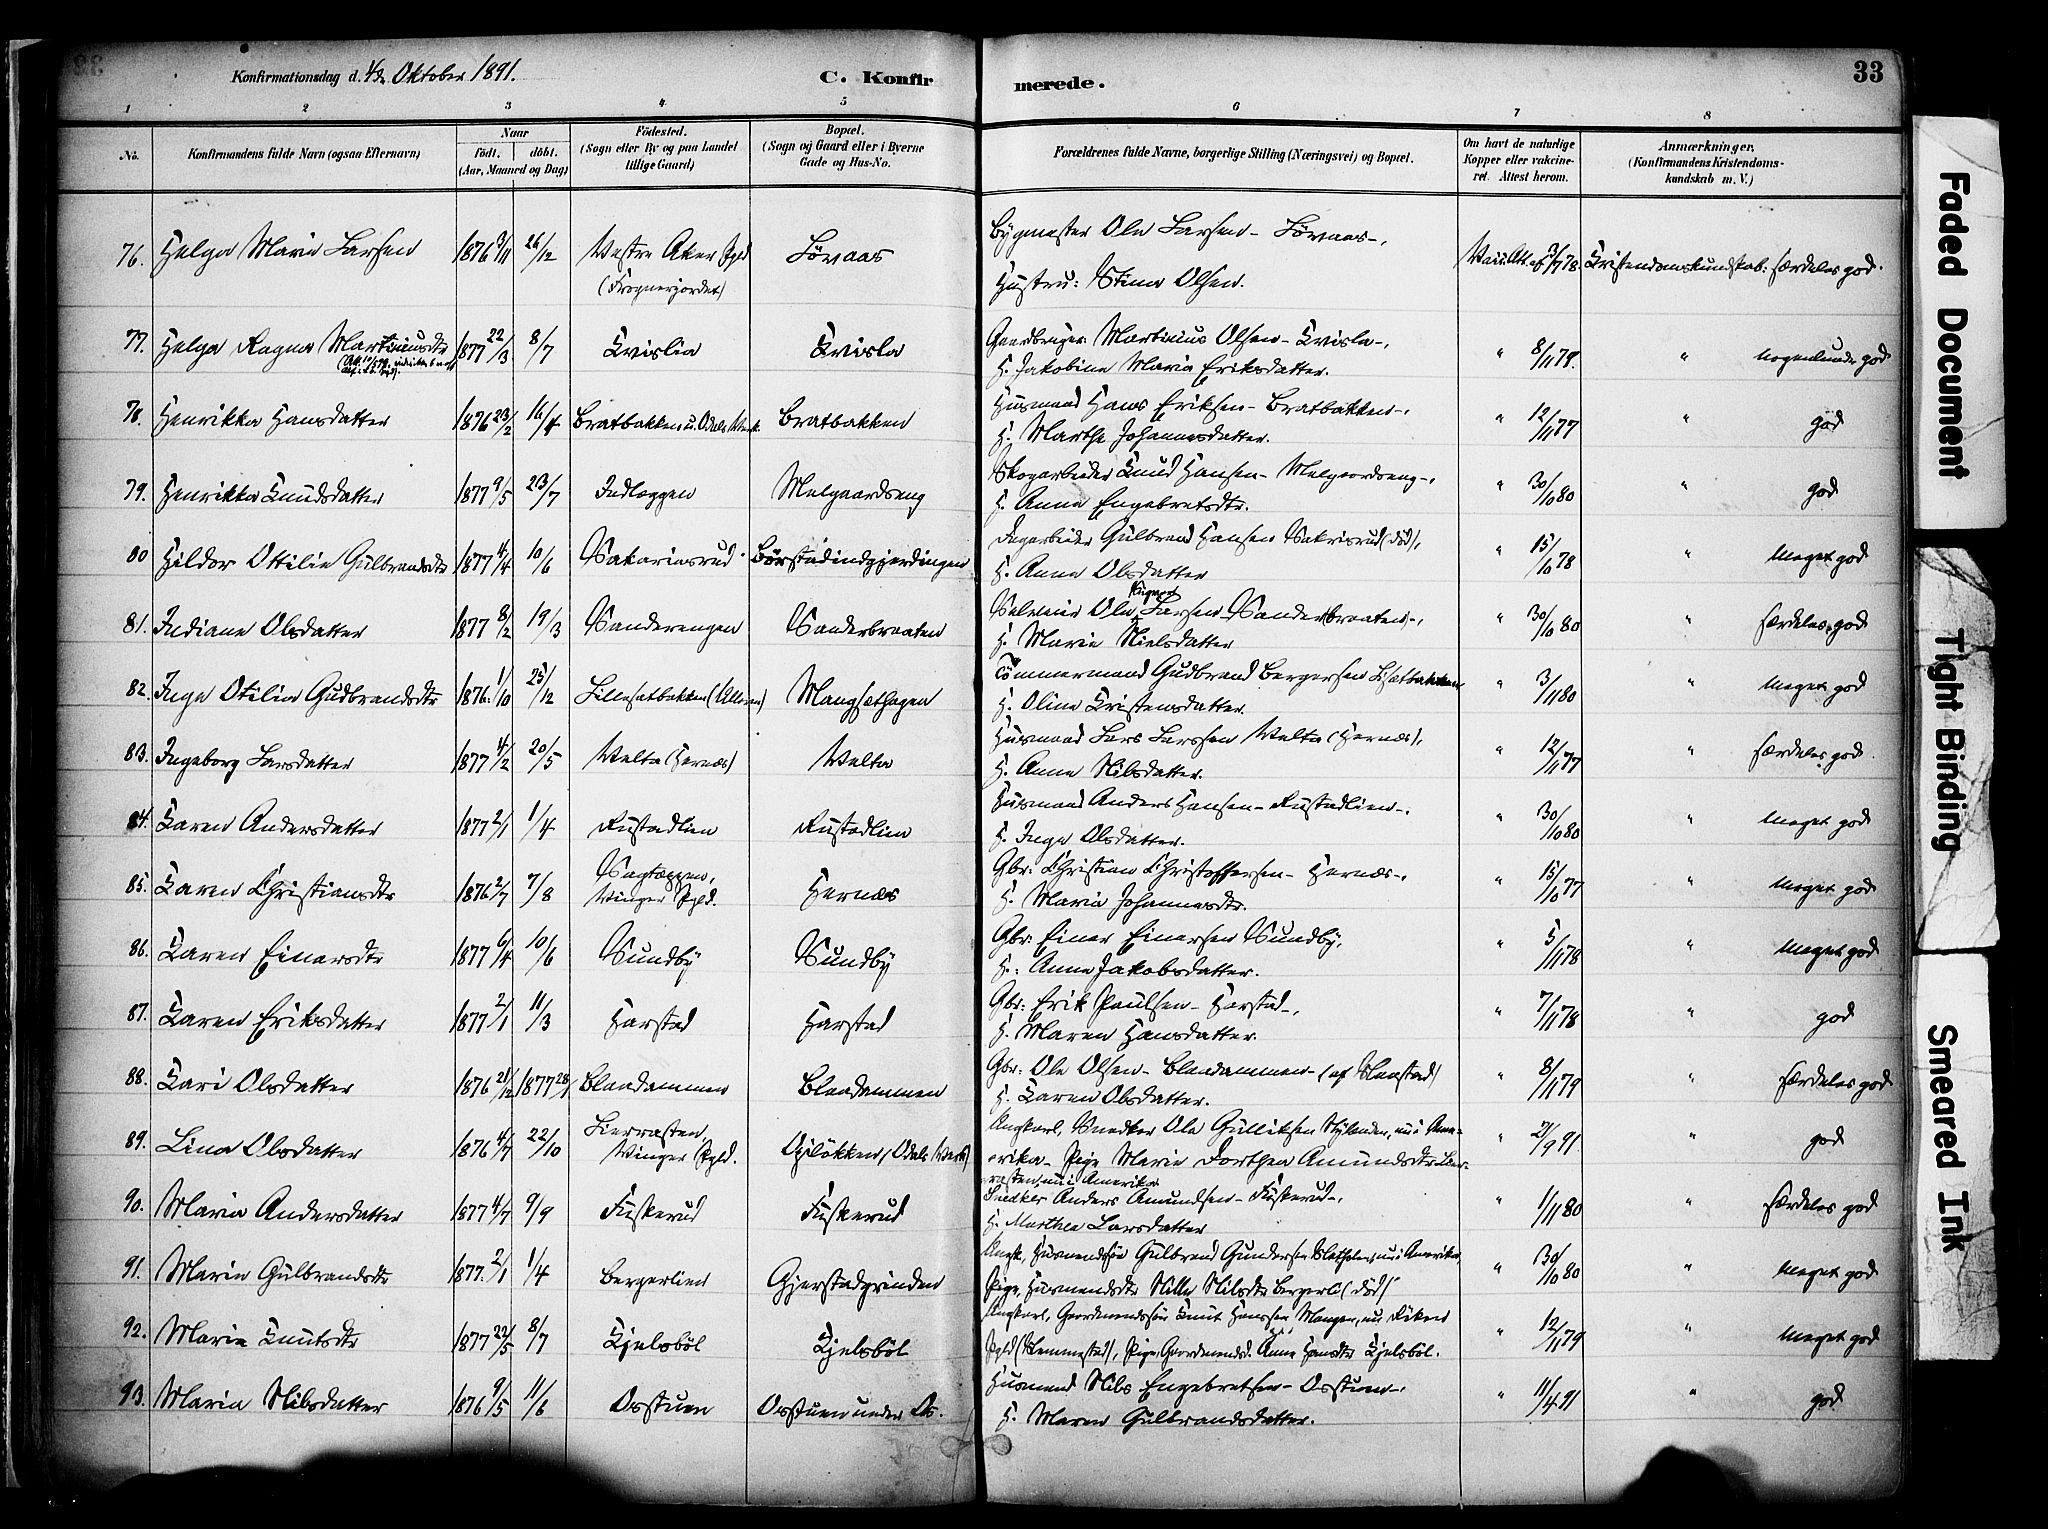 Konfirmationsdag d. 4de Oktober 1891. C. Konfir merede. 33
1 2 3 4 5 6 7 8
No. Konfirmandens fulde Navn (ogsaa Efternavn) Naar födt. döbt. (Aar, Maaned og Dag) Födested. (Sogn eller By og paa Landet tillige Gaard) Bopæl. (Sogn og Gaard eller i Byerne Gade og Hus-No. Forældrenes fulde Navne, borgerlige Stilling (Næringsvei) og Bopæl. Om havt de naturlige Kopper eller vakcineret. Attest herom. Anmærkninger. (Konfirmandens Kristendomskundskab m. V.)
76. Helga Marie Larsen 1876 3/11 26/12 Vestre Aker Pgld (Frognerjordet) Lövaas Bygmester Ole Larsen - Lövaas -,
Hustru: Stina Olsen. Vacc. Att. af 3/7 78. Kristendomskundskab: særdeles god.
77. Helga Ragna Martinusdtr 1877 22/3 8/7 Kvislia Kvisla Gaardbruger Martinius Olsen - Kvisla -,
H. Jakobine Marie Eriksdatter. " 8/11 78. " nogenlunde god
78. Henrikka Hansdatter 1876 23/2 16/4 Bratbakken u. Odals Værk. Bratbakken Husmand Hans Eriksen - Bratbakken -,
H. Marthe Johannesdatter. " 12/11 77 " god
79. Henrikka Knudsdatter 1877 9/5 23/7 Indlæggen Melgaardseng Skogarbeider Knud Hansen - Melgaardseng -,
H. Anne Engebretsdtr. " 30/10 80 " god
80 Hildor Ottilie Gulbrandsdtr 1877 4/4 10/6 Sakariasrud Börstadindgjerdingen Gulbrand Hansen Sakrisrud (död),
H. Anne Olsdatter " 15/10 78 " Meget god
81. Indiane Olsdatter 1877 8/2 19/3 Sanderengen Sanderbraaten Ole Larsen Sanderbraaten -,
H. Marie Nielsdatter " 30/10 80 " særdeles god
82. Inga Otilia Gudbrandsdtr 1876. 1/10 25/12 Lillesetbakken Mangsethagen Tömmermand Gudbrand Bergersen
H. Oline Kristensdatter. " 3/11 80 " Meget god
83. Ingeborg Larsdatter 1877 4/2 20/5 Velta (Hernæs) Velta Husmand Lars Larssen Velta (Hernæs),
H. Anne Nilsdatter. " 12/11 77 " særdeles god
84. Karen Andersdatter 1877 2/1 1/4 Rustadlien Rustadlien Husmand Anders Hansen - Rustadlien -.
H. Inga Olsdatter. " 30/10 80 " Meget god
85. Karen Christiansdtr 1876 2/7 7/8 Vinger Pgld. Hernæs Gbr: Christian Christoffersen - Hernæs -,
H. Maria Johannesdtr. " 15/10 77 " Meget god
86. Karen Einarsdtr 1877 6/4 10/6 Sundby Sundby Gbr: Einar Einarsen Sundby,
H.: Anne Jakobsdatter. " 5/11 78 " Meget god
87. Karen Eriksdatter 1877 2/1 11/3 Harstad Harstad Gbr: Erik Paulsen - Harstad -,
H. Maren Hansdatter. " 7/11 78 " god
88. Kari Olsdatter 1876 21/12 1877 28/1 Blandammen Blandammen Gbr: Ole Olsen - Blandammen - (af Haastad)
H. Karen Olsdatter. " 8/11 79 " særdeles god
89. Lina Olsdatter 1876 4/7 22/10 Lierrasten, Vinger Pgld. (Odals Værk) Ungkarl, Snedker Ole Gulliksen nu i Ame-
rika - Pige Marie Dorthea Amundsdtr
nu i Amerika " 2/9 91 " god
90. Maria Andersdatter 1877 4/7 9/9 Fuskerud Fuskerud Snedker Anders Amundsen - Fuskerud -,
H. Marthea Larsdatter " 1/11 80 " særdeles god
91. Marie Gulbrandsdtr 1877. 2/1 1/4 Bergerlien Gjerstadgrinden Ungk. Husmandssön Gulbrand Gundersen nu i Amerika,
Pige, Husmandsdtr Nille Nilsdtr Bergerli (död) " 30/10 80 " Meget god
92. Marie Knutsdtr 1877 22/5 8/7 Kjelsböl Kjelsböl Ungkarl, Gaardmandssön Knut Hanssen Mangen, nu Röken
Pgld (Slemmestad), Pige, Gaardmandsd. Anne Hansdtr Kjelsböl. " 12/11 79 " Meget god
93. Maria Nilsdatter 1876 9/5 11/6 Osstuen Osstuen under Os. Husmand Nils Engebretsen - Osstuen -,
H. Maren Gulbrandsdatter. " 11/4 91 " god
Faded Document
Tight Binding
Smeared Ink